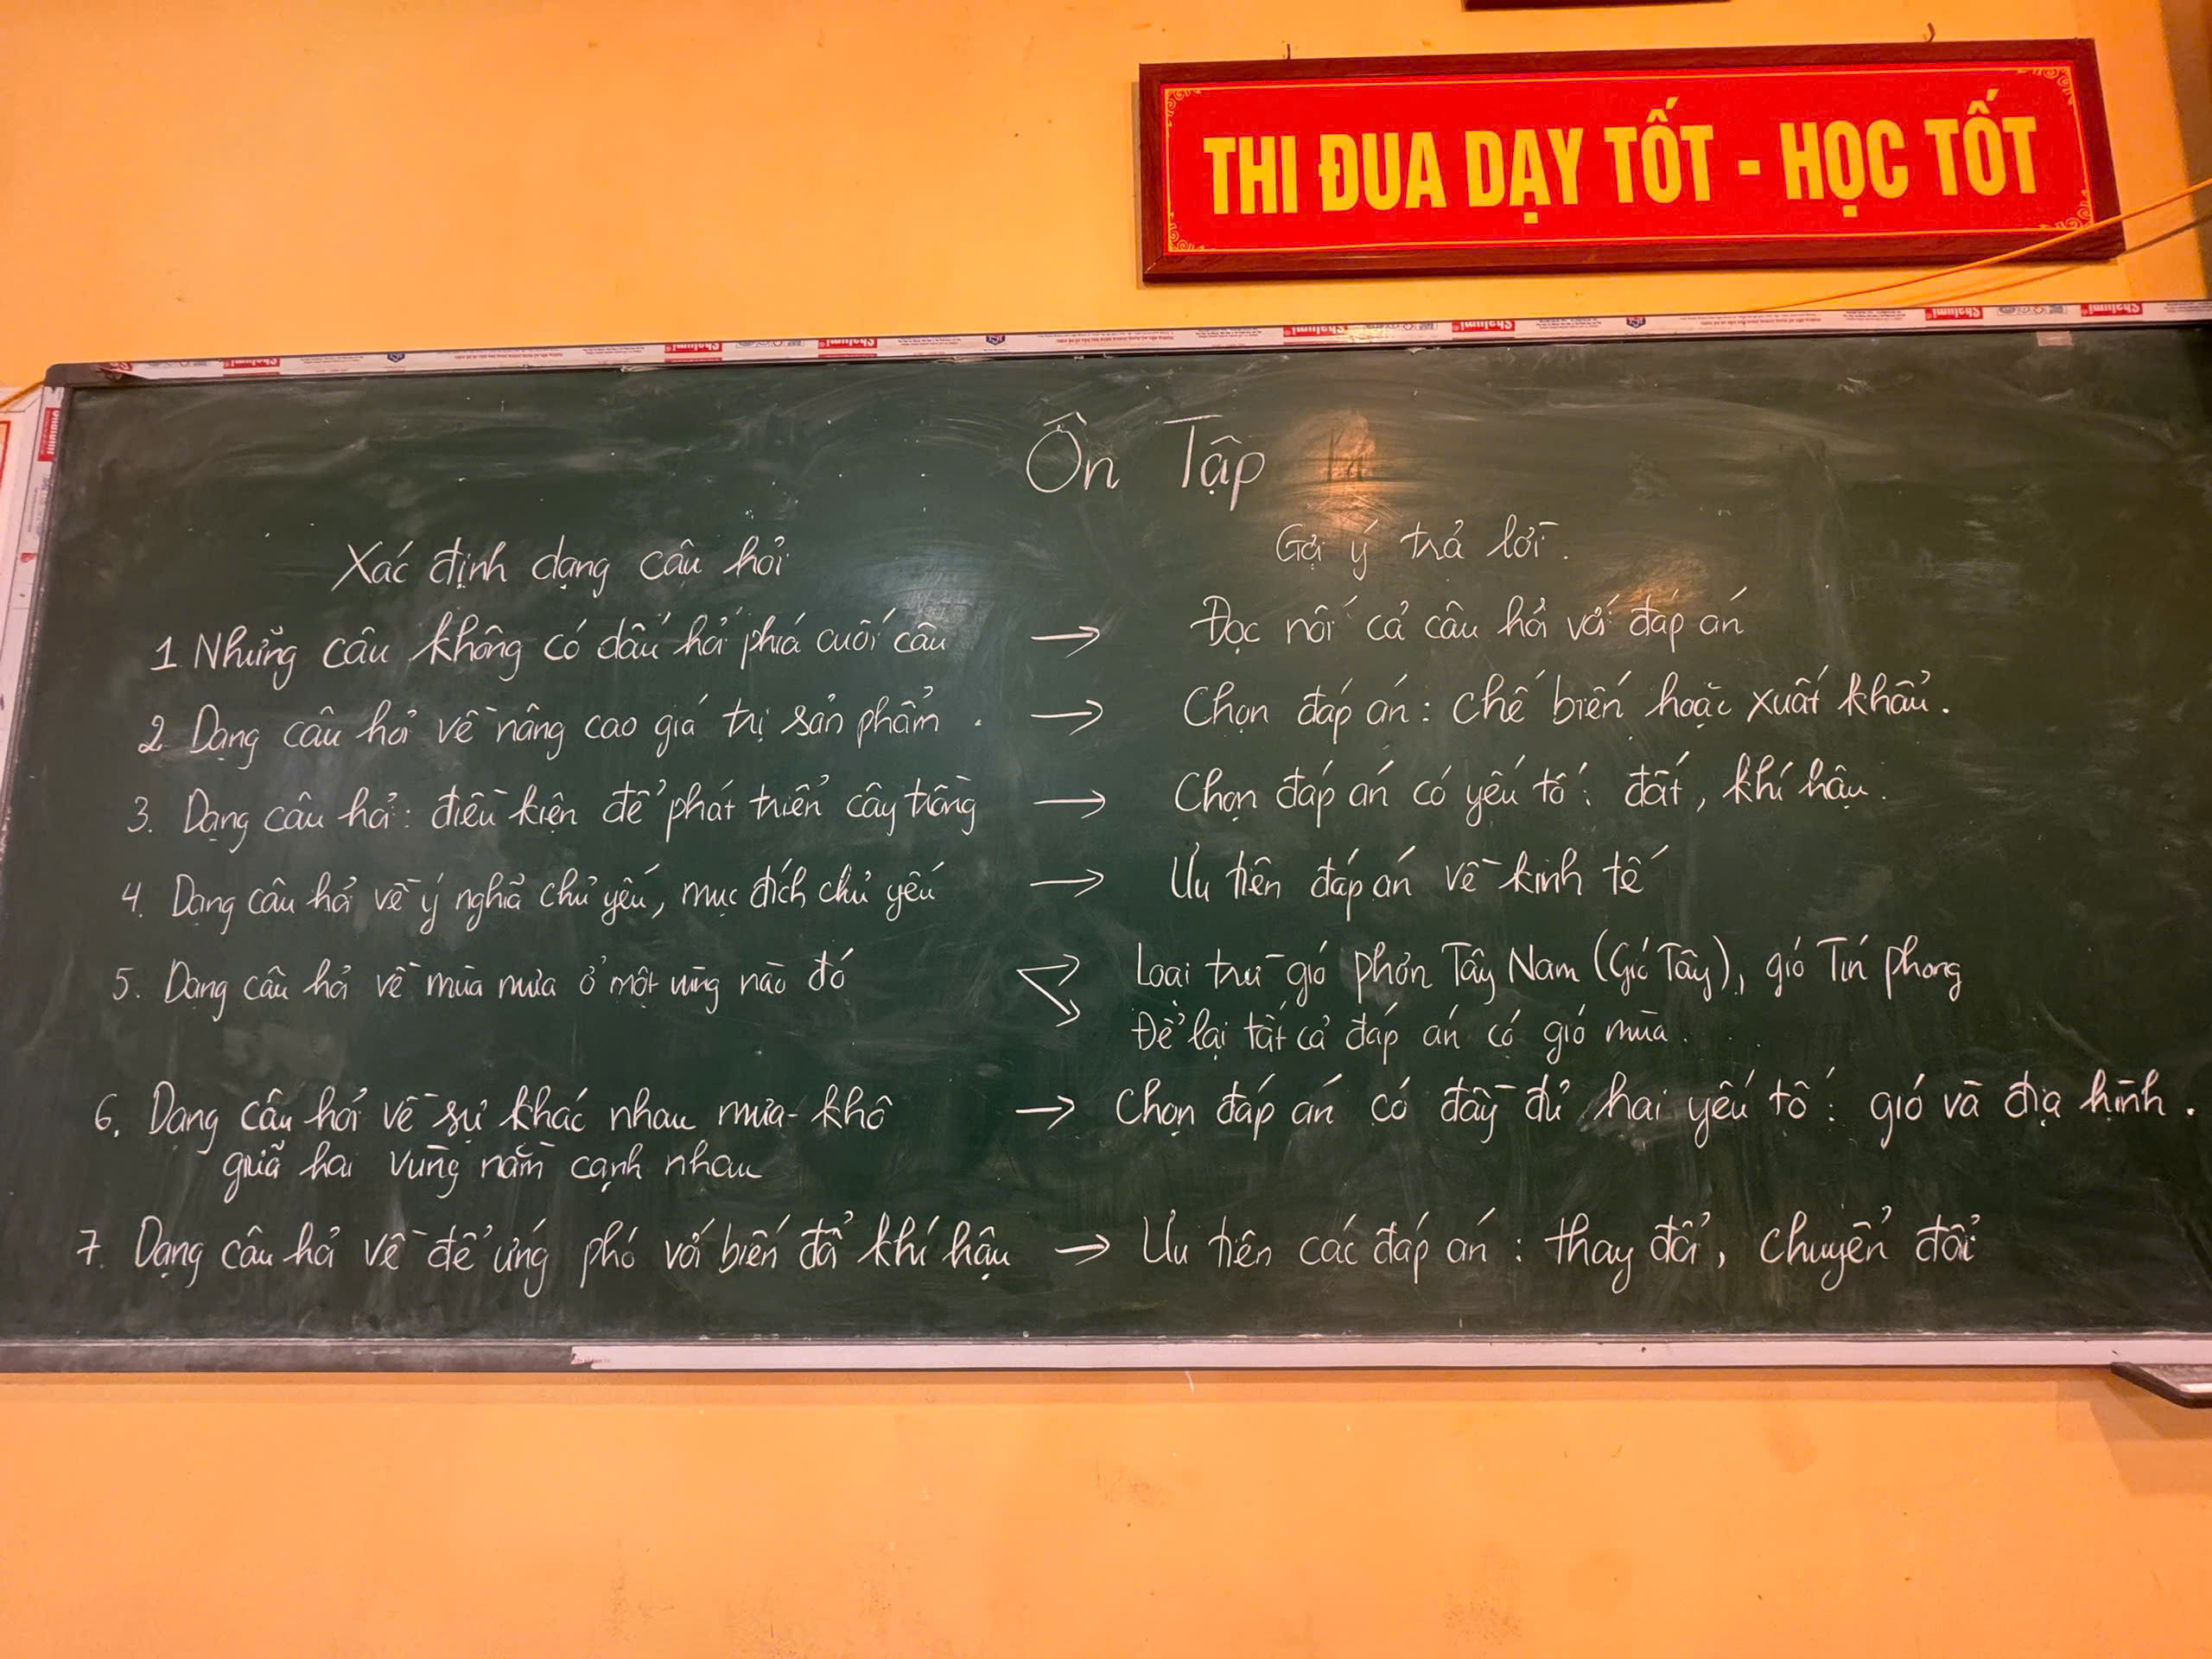 THI ĐUA DẠY TỐT - HỌC TỐT
Ôn Tập
Xác định dạng câu hỏi
Gợi ý trả lời.
1 Những câu không có dấu hỏi phía cuối câu → Đọc nối cả câu hỏi với đáp án
2 Dạng câu hỏi về nâng cao giá trị sản phẩm. → Chọn đáp án: chế biến hoặc xuất khẩu.
3. Dạng câu hỏi: điều kiện để phát triển cây trồng → Chọn đáp án có yếu tố: đất, khí hậu.
4. Dạng câu hỏi về ý nghĩa chủ yếu, mục đích chủ yếu → Ưu tiên đáp án về kinh tế
5. Dạng câu hỏi về mùa mưa ở một vùng nào đó Loại trừ gió phơn Tây Nam (Gió Tây), gió Tín phong
Để lại tất cả đáp án có gió mùa.
6. Dạng câu hỏi về sự khác nhau mưa - khô → Chọn đáp án có đầy đủ hai yếu tố: gió và địa hình.
giữa hai vùng nằm cạnh nhau
7. Dạng câu hỏi về để ứng phó với biến đổi khí hậu → Ưu tiên các đáp án: thay đổi, chuyển đổi